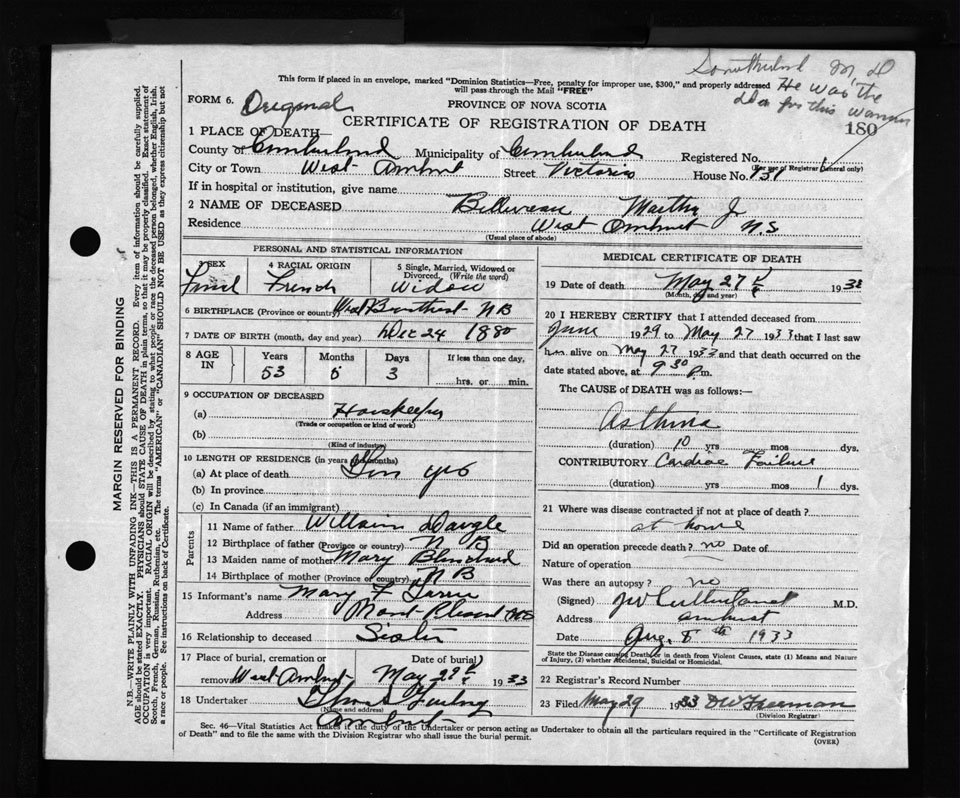 This form if placed in an envelope, marked "Dominion Statistics—Free, penalty for improper use, $300," and properly addressed
will pass through the Mail "FREE"
M.D
He was the
for this woman
FORM 6. Original
PROVINCE OF NOVA SCOTIA
CERTIFICATE OF REGISTRATION OF DEATH
180
1 PLACE OF DEATH—
County or Cumberland Municipality of Cumberland Registered No.
(For use of Registrar General only)
City or Town West Amherst Street Victoria House No. 131
If in hospital or institution, give name
2 NAME OF DECEASED Belliveau Martha J
Residence West Amherst N.S
(Usual place of abode)
PERSONAL AND STATISTICAL INFORMATION
3 SEX 4 RACIAL ORIGIN 5 Single, Married, Widowed or Divorced. (Write the word)
French Widow
6 BIRTHPLACE (Province or country) NB
7 DATE OF BIRTH (month, day and year) Dec 24 1880
8 AGE IN Years Months Days If less than one day,
53 5 3 hrs. or min.
9 OCCUPATION OF DECEASED
(a) Houskeeper
(Trade or occupation or kind of work)
(b)
(Kind of industry)
10 LENGTH OF RESIDENCE (in years and months)
(a) At place of death yrs
(b) In province
(c) In Canada (if an immigrant)
Parents
11 Name of father William Daigle
12 Birthplace of father (Province or country) N B
13 Maiden name of mother Mary Blanchard
14 Birthplace of mother (Province or country) N B
15 Informant's name Mary F
Address Mount Pleasant
16 Relationship to deceased Sister
17 Place of burial, cremation or removal West Amherst Date of burial May 29 1933
18 Undertaker
(Name and address)
Amherst
MEDICAL CERTIFICATE OF DEATH
19 Date of death May 27 193
(Month, day and year)
20 I HEREBY CERTIFY that I attended deceased from
June 1929 to May 27 1933 that I last saw
h alive on May 27 1933 and that death occurred on the
date stated above, at 9 30 P.m.
The CAUSE of DEATH was as follows:
Asthma
(duration) 10 yrs mos dys.
CONTRIBUTORY Cardiac Failure
(duration) yrs mos 1 dys.
21 Where was disease contracted if not at place of death?
at home
Did an operation precede death? no Date of
Nature of operation
Was there an autopsy? no
(Signed) M.D.
Address Amherst
Date Aug. 8th 1933
State the Disease causing Death, or in death from Violent Causes, state (1) Means and Nature
of Injury, (2) whether Accidental, Suicidal or Homicidal.
22 Registrars Record Number
23 Filed May 29 1933 DW Freeman
(Division Registrar)
Sec. 46—Vital Statistics Act makes it the duty of the Undertaker or person acting as Undertaker to obtain all the particulars required in the "Certificate of Registration
of Death" and to file the same with the Division Registrar who shall issue the burial permit.
(OVER)
MARGIN RESERVED FOR BINDING
N.B.—WRITE PLAINLY WITH UNFADING INK—THIS IS A PERMANENT RECORD. Every item of information should be carefully supplied.
AGE should be stated EXACTLY. PHYSICIANS should STATE CAUSE OF DEATH in plain terms, so that it may be properly classified. Exact statement of
OCCUPATION is very important. RACIAL ORIGIN will be described by stating to what people or race the deceased person belonged, whether English, Irish,
Scotch, French, German, Russian, Ruthenian, etc. The terms "AMERICAN" or "CANADIAN" SHOULD NOT BE USED as they express citizenship but not
a race or people. See instructions on back of Certificate.